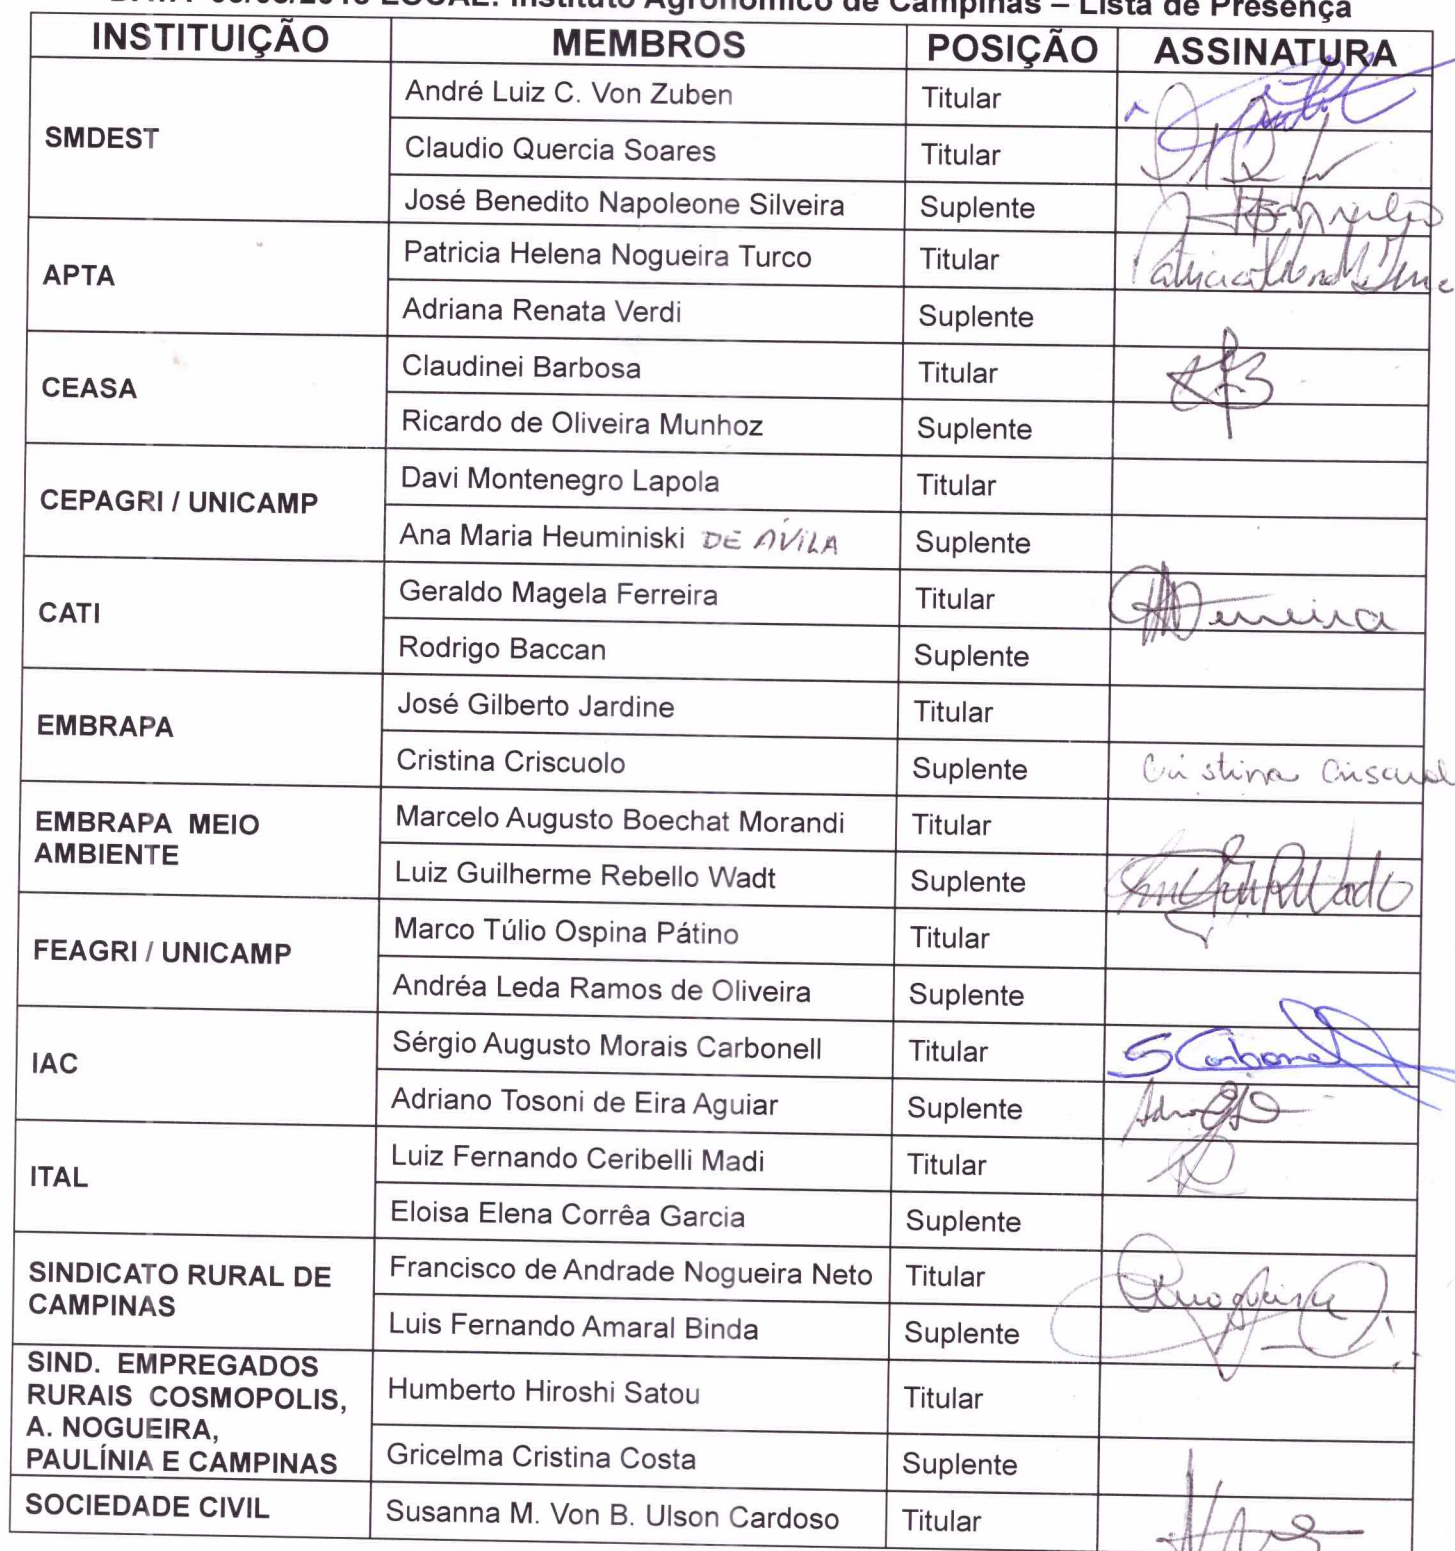 LOCAL: Instituto Agronômico de Campinas – Lista de Presença
INSTITUIÇÃO MEMBROS POSIÇÃO ASSINATURA
SMDEST
André Luiz C. Von Zuben Titular
Claudio Quercia Soares Titular
José Benedito Napoleone Silveira Suplente
APTA
Patricia Helena Nogueira Turco Titular
Adriana Renata Verdi Suplente
CEASA
Claudinei Barbosa Titular
Ricardo de Oliveira Munhoz Suplente
CEPAGRI / UNICAMP
Davi Montenegro Lapola Titular
Ana Maria Heuminiski DE ÁVILA Suplente
CATI
Geraldo Magela Ferreira Titular
Rodrigo Baccan Suplente
EMBRAPA
José Gilberto Jardine Titular
Cristina Criscuolo Suplente Cristina
EMBRAPA MEIO
AMBIENTE
Marcelo Augusto Boechat Morandi Titular
Luiz Guilherme Rebello Wadt Suplente
FEAGRI / UNICAMP
Marco Túlio Ospina Pátino Titular
Andréa Leda Ramos de Oliveira Suplente
IAC
Sérgio Augusto Morais Carbonell Titular
Adriano Tosoni de Eira Aguiar Suplente
ITAL
Luiz Fernando Ceribelli Madi Titular
Eloisa Elena Corrêa Garcia Suplente
SINDICATO RURAL DE
CAMPINAS
Francisco de Andrade Nogueira Neto Titular
Luis Fernando Amaral Binda Suplente
SIND. EMPREGADOS
RURAIS COSMOPOLIS,
A. NOGUEIRA,
PAULÍNIA E CAMPINAS
Humberto Hiroshi Satou Titular
Gricelma Cristina Costa Suplente
SOCIEDADE CIVIL
Susanna M. Von B. Ulson Cardoso Titular